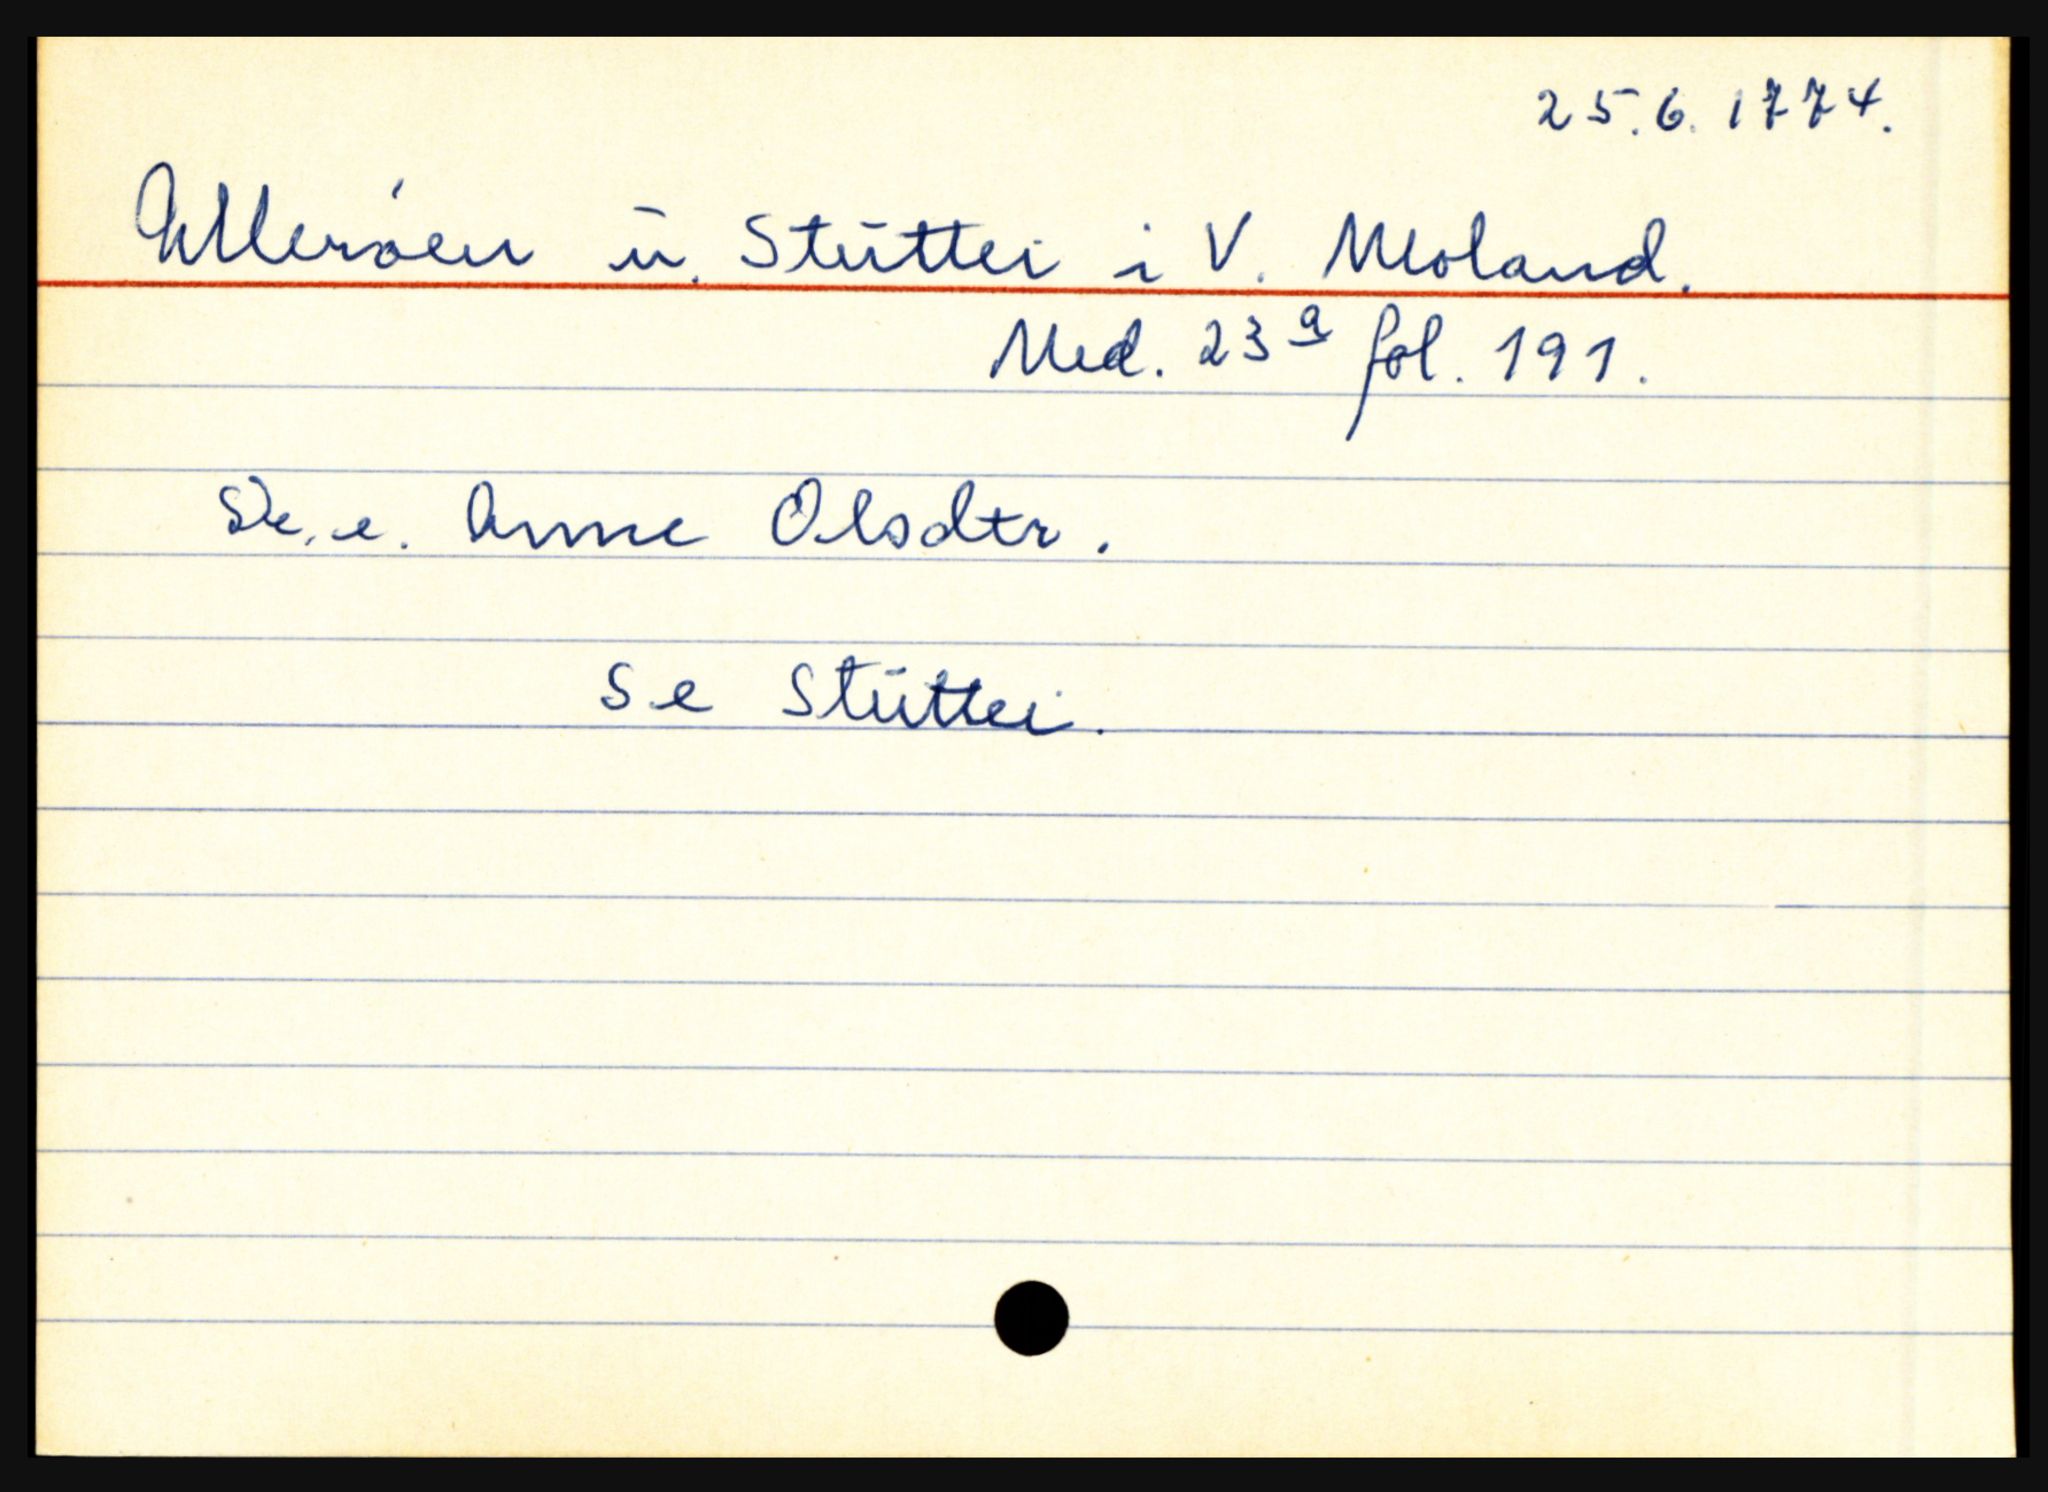 25.6.1774.
Allerøen u. Stuttei i V. Moland.
Ned. 23 a fol. 191.
Sk. e. Anne Olsdtr.
Se Stuttei.